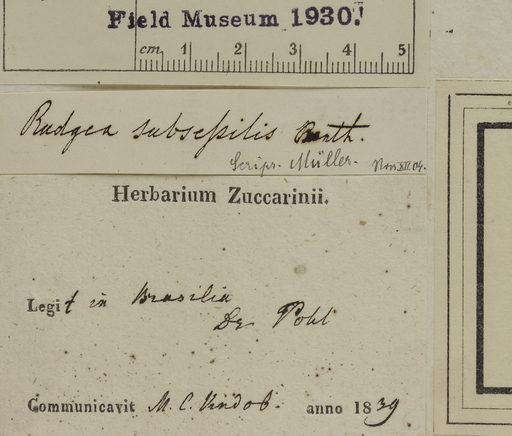 Field Museum 1930.
cm 1 2 3 4 5
Rudgea subseſsilis Benth.
Scrips. Müller. Nov. XII. 04.
Herbarium Zuccarinii.
Legit in Brasilia
Dr Pohl
Communicavit M. C. Vindob. anno 1839